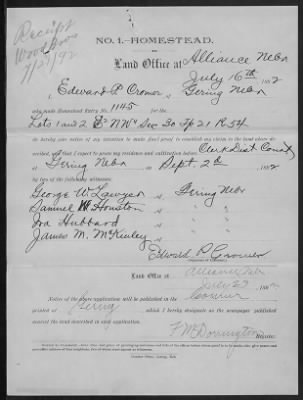 Receipt
Wood Bros
7/27/92
NO. 1.—HOMESTEAD.
Land Office at Alliance Nebr
July 16th 1892
I, Edward P. Cromer of Gering Nebr
who made Homestead Entry No. 1145 for the
Lots 1 and 2 E½ NW¼ Sec 30 Tp 21 R 54
do hereby give notice of my intention to make final proof to establish my claim to the land above described,
and that I expect to prove my residence and cultivation before Clerk Dist Court
at Gering Nebr on Sept 2d 1892
by two of the following witnesses:
George W. Lawyer of Gering Nebr
Samuel W. Houston of " "
Ira Hubbard of " "
James M. McKinley of " "
Edward P. Cromer
Land Office at Alliance Neb
July 23 1892
Notice of the above application will be published in the Courier
printed at Gering, which I hereby designate as the newspaper published
nearest the land described in said application.
Register.